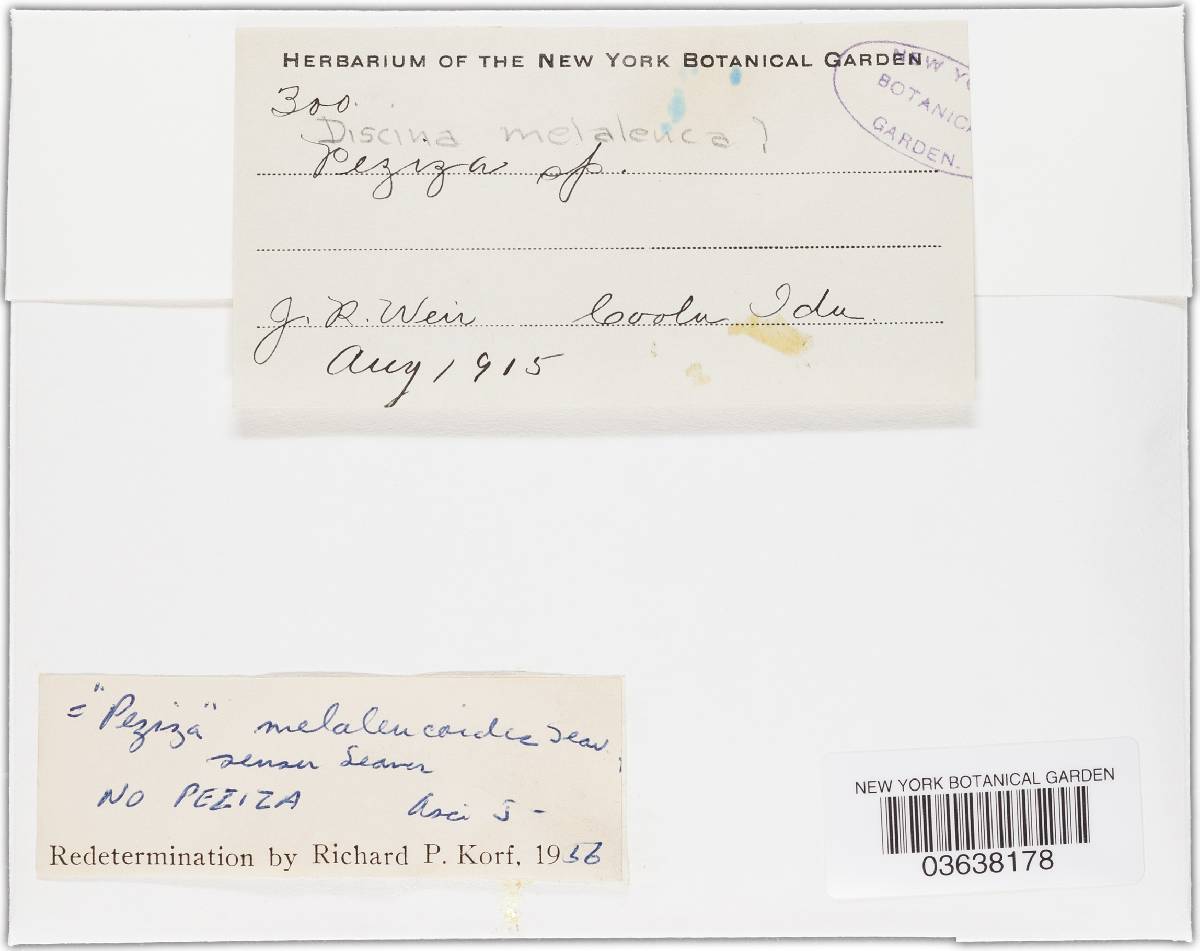 HERBARIUM OF THE NEW YORK BOTANICAL GARDEN
NEW YO
BOTANICA
GARDEN.
300.
Discina melaleuca?
Peziza sp.
J. R. Weir Coolin Ida.
Aug 1915
= "Peziza" melaleucoides Seav.
sensu Seaver
NO PEZIZA Asci J -
Redetermination by Richard P. Korf, 1956
NEW YORK BOTANICAL GARDEN
03638178